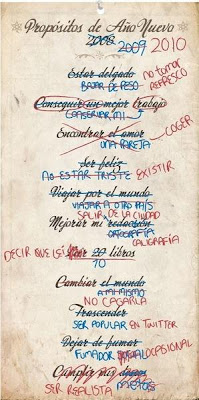 Propósitos de Año Nuevo
2008 2009 2010
Estar delgado no tomar
BAJAR DE PESO REFRESCO
Conseguir un mejor trabajo
CONSERVAR MI
Encontrar el amor COGER
UNA PAREJA
Ser feliz
NO ESTAR TRISTE EXISTIR
Viajar por el mundo
VIAJAR A OTRO PAÍS
SALIR DE LA CIUDAD
Mejorar mi redacción
ORTOGRAFÍA
CALIGRAFÍA
DECIR QUE LEÍ Leer 20 libros
10
Cambiar el mundo
A MÍ MISMO
NO CAGARLA
Trascender
SER POPULAR EN TWITTER
Dejar de fumar
FUMADOR OCASIONAL
Cumplir mis
SER REALISTA